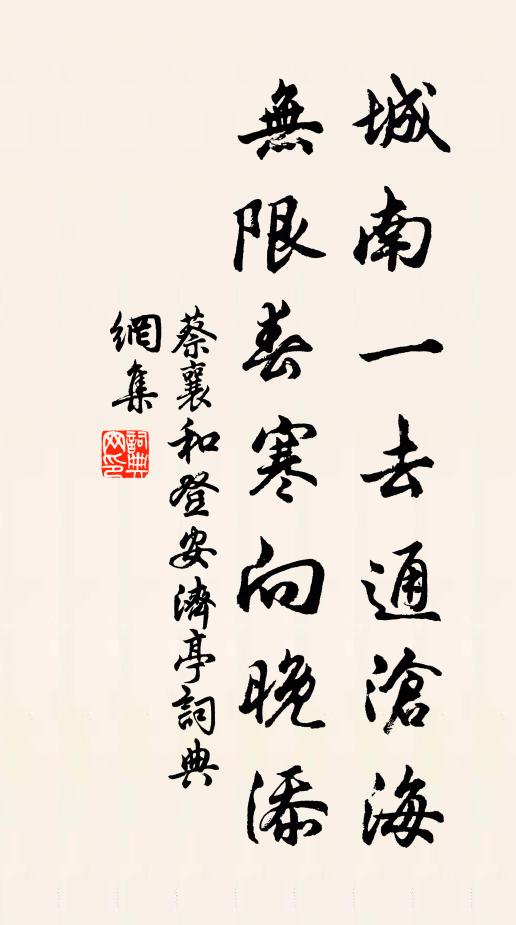 城南一去通滄海
無限春寒向晚添
蔡襄和登安濟亭詞典
網集
詞典
网印